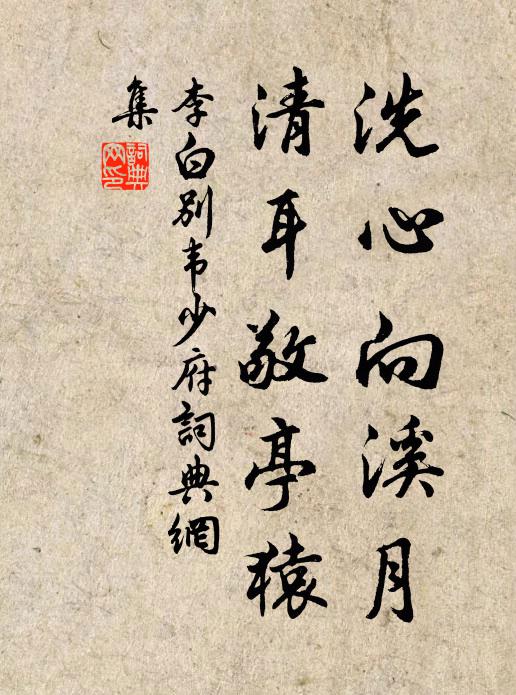 洗心向溪月
清耳敬亭猿
李白別韦少府詞典網
集
詞典
网印